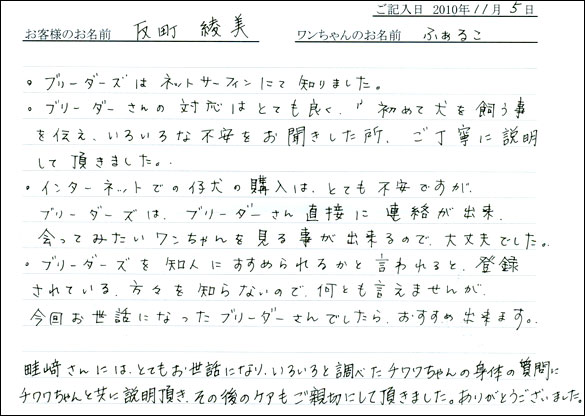 ご記入日 2010年11月5日
お客様のお名前 反町 綾美 ワンちゃんのお名前 ふぁるこ
。ブリーダーズはネットサーフィンにて知りました。
。ブリーダーさんの対応はとても良く、初めて犬を飼う事
を伝え、いろいろな不安をお聞きした所、ご丁寧に説明
して頂きました。
。インターネットでの仔犬の購入は、とても不安ですが、
ブリーダーズは、ブリーダーさん直接に連絡が出来、
会ってみたいワンちゃんを見る事が出来るので、大丈夫でした。
。ブリーダーズを知人にすすめられるかと言われると、登録
されている、方々を知らないので、何とも言えませんが、
今回お世話になったブリーダーさんでしたら、おすすめ出来ます。
畦﨑さんには、とてもお世話になり、いろいろと調べたチワワちゃんの身体の質問に
チワワちゃんと共に説明頂き、その後のケアもご親切にして頂きました。ありがとうございました。